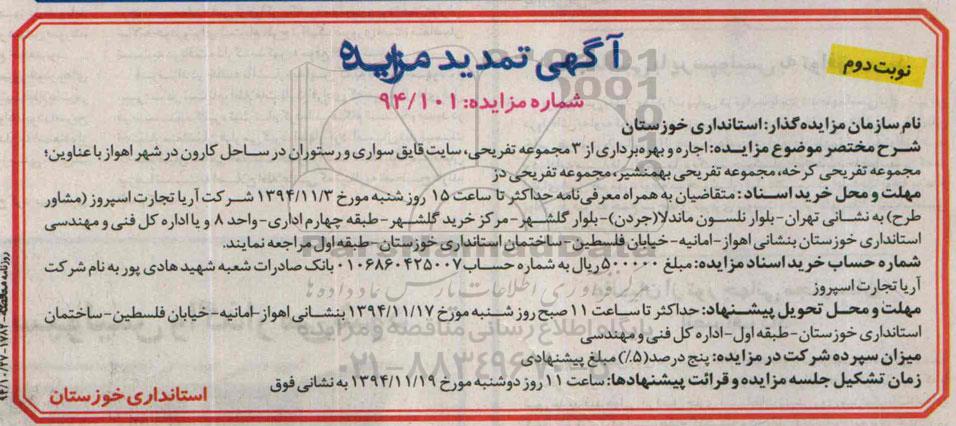 آگهی تمدید مزایده
نوبت دوم
شماره مزایده: ۹۴/۱۰۱
نام سازمان مزایده گذار: استانداری خوزستان
شرح مختصر موضوع مزایده: اجاره و بهره برداری از ۳ مجموعه تفریحی، سایت قایق سواری و رستوران در ساحل کارون در شهر اهواز با عناوین؛
مجموعه تفریحی کرخه، مجموعه تفریحی بهمنشیر، مجموعه تفریحی دز
مهلت و محل خرید اسناد: متقاضیان به همراه معرفی نامه حداکثر تا ساعت ۱۵ روز شنبه مورخ ۱۳۹۴/۱۱/۳ شرکت آریا تجارت اسپروز (مشاور
طرح) به نشانی تهران-بلوار نلسون ماندلا(جردن)-بلوار گلشهر-مرکز خرید گلشهر-طبقه چهارم اداری-واحد ۸ و یا اداره کل فنی و مهندسی
استانداری خوزستان بنشانی اهواز-امانیه-خیابان فلسطین-ساختمان استانداری خوزستان-طبقه اول مراجعه نمایند.
شماره حساب خرید اسناد مزایده: مبلغ ۵۰۰۰۰۰ ریال به شماره حساب ۰۱۰۶۸۶۰۴۲۵۰۰۷ بانک صادرات شعبه شهید هادی پور به نام شرکت
آریا تجارت اسپروز
مهلت و محل تحویل پیشنهاد: حداکثر تا ساعت ۱۱ صبح روز شنبه مورخ ۱۳۹۴/۱۱/۱۷ بنشانی اهواز-امانیه-خیابان فلسطین-ساختمان
استانداری خوزستان-طبقه اول-اداره کل فنی و مهندسی
میزان سپرده شرکت در مزایده: پنج درصد(۵٪) مبلغ پیشنهادی
زمان تشکیل جلسه مزایده و قرائت پیشنهادها: ساعت ۱۱ روز دوشنبه مورخ ۱۳۹۴/۱۱/۱۹ به نشانی فوق
استانداری خوزستان
ParsNamadData
پایگاه اطلاع رسانی مناقصه و مزایده
۰۲۱-۸۸۳۴۹۶۷۰-۵